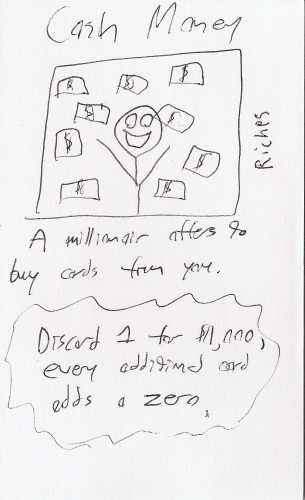 Cash Money
$ $ $
$ $
$ $
$ $
Riches
A millionair offers to
buy cards from you.
Discard 1 for $1,000,
every additional card
adds a zero.